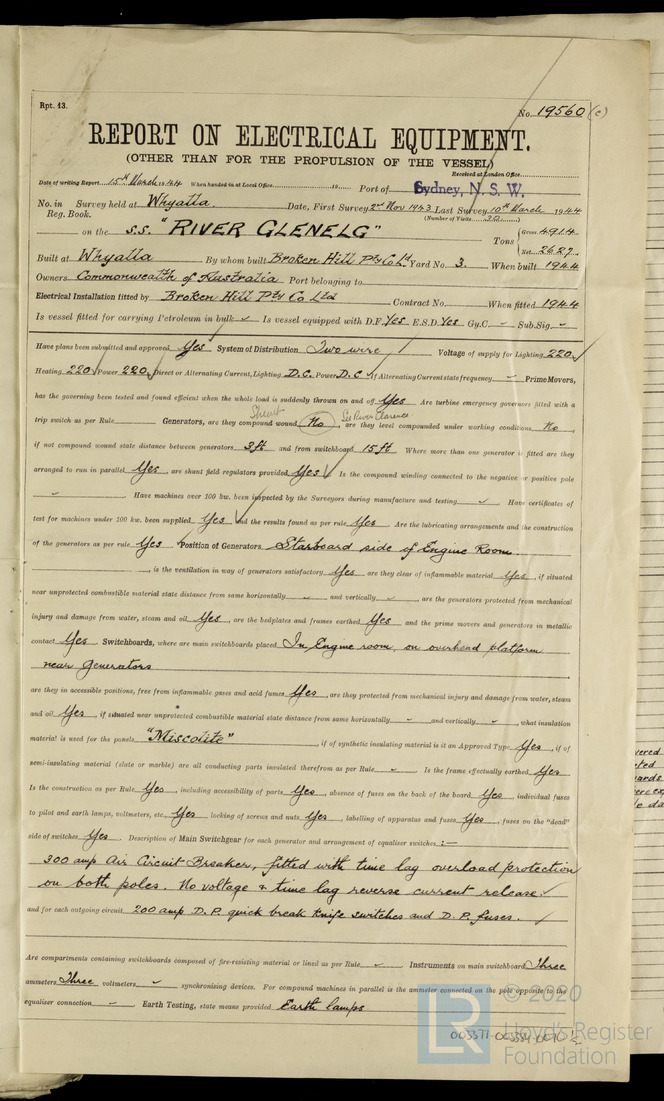 Rpt. 13.
No. 19560 (c)
REPORT ON ELECTRICAL EQUIPMENT.
(OTHER THAN FOR THE PROPULSION OF THE VESSEL)
Received at London Office
Date of writing Report 15th March 1944 When handed in at Local Office 19 Port of Sydney, N. S. W.
No. in Survey held at Whyalla. Date, First Survey 2nd Nov 1943 Last Survey 10th March 1944
Reg. Book. (Number of Visits 30)
on the S.S. "RIVER GLENELG" Tons Gross 4914 Net 2627
Built at Whyalla By whom built Broken Hill Pty Co Ld Yard No. 3. When built 1944
Owners Commonwealth of Australia Port belonging to
Electrical Installation fitted by Broken Hill Pty Co Ltd Contract No. When fitted 1944
Is vessel fitted for carrying Petroleum in bulk - Is vessel equipped with D.F. Yes E.S.D. Yes Gy.C - Sub.Sig. -
Have plans been submitted and approved Yes System of Distribution Two wire Voltage of supply for Lighting 220
Heating 220 Power 220 Direct or Alternating Current, Lighting D.C. Power D.C If Alternating Current state frequency - Prime Movers,
has the governing been tested and found efficient when the whole load is suddenly thrown on and off Yes Are turbine emergency governors fitted with a
Shunt See River Clarence
trip switch as per Rule Generators, are they compound wound No, are they level compounded under working conditions No,
if not compound wound state distance between generators 3ft and from switchboard 15ft Where more than one generator is fitted are they
arranged to run in parallel Yes, are shunt field regulators provided Yes Is the compound winding connected to the negative or positive pole
- Have machines over 100 kw. been inspected by the Surveyors during manufacture and testing - Have certificates of
test for machines under 100 kw. been supplied Yes and the results found as per rule Yes Are the lubricating arrangements and the construction
of the generators as per rule Yes Position of Generators Starboard side of Engine Room.
, is the ventilation in way of generators satisfactory Yes are they clear of inflammable material Yes, if situated
near unprotected combustible material state distance from same horizontally - and vertically -, are the generators protected from mechanical
injury and damage from water, steam and oil Yes, are the bedplates and frames earthed Yes and the prime movers and generators in metallic
contact Yes Switchboards, where are main switchboards placed In Engine room, on overhead platform
near Generators
are they in accessible positions, free from inflammable gases and acid fumes Yes, are they protected from mechanical injury and damage from water, steam
and oil Yes, if situated near unprotected combustible material state distance from same horizontally - and vertically -, what insulation
material is used for the panels "Miscolite", if of synthetic insulating material is it an Approved Type Yes, if of
semi-insulating material (slate or marble) are all conducting parts insulated therefrom as per Rule - Is the frame effectually earthed Yes
Is the construction as per Rule Yes, including accessibility of parts Yes, absence of fuses on the back of the board Yes, individual fuses
to pilot and earth lamps, voltmeters, etc. Yes locking of screws and nuts Yes, labelling of apparatus and fuses Yes, fuses on the "dead"
side of switches Yes. Description of Main Switchgear for each generator and arrangement of equaliser switches :-
300 amp Air Circuit Breaker, fitted with time lag overload protection
on both poles. No voltage & time lag reverse current release.
and for each outgoing circuit 200 amp D.P. quick break knife switches and D.P. fuses.
Are compartments containing switchboards composed of fire-resisting material or lined as per Rule - Instruments on main switchboard Three
ammeters Three voltmeters - synchronising devices. For compound machines in parallel is the ammeter connected on the pole opposite to the
equaliser connection - Earth Testing, state means provided Earth lamps
LR
© 2020
Lloyd's Register
Foundation